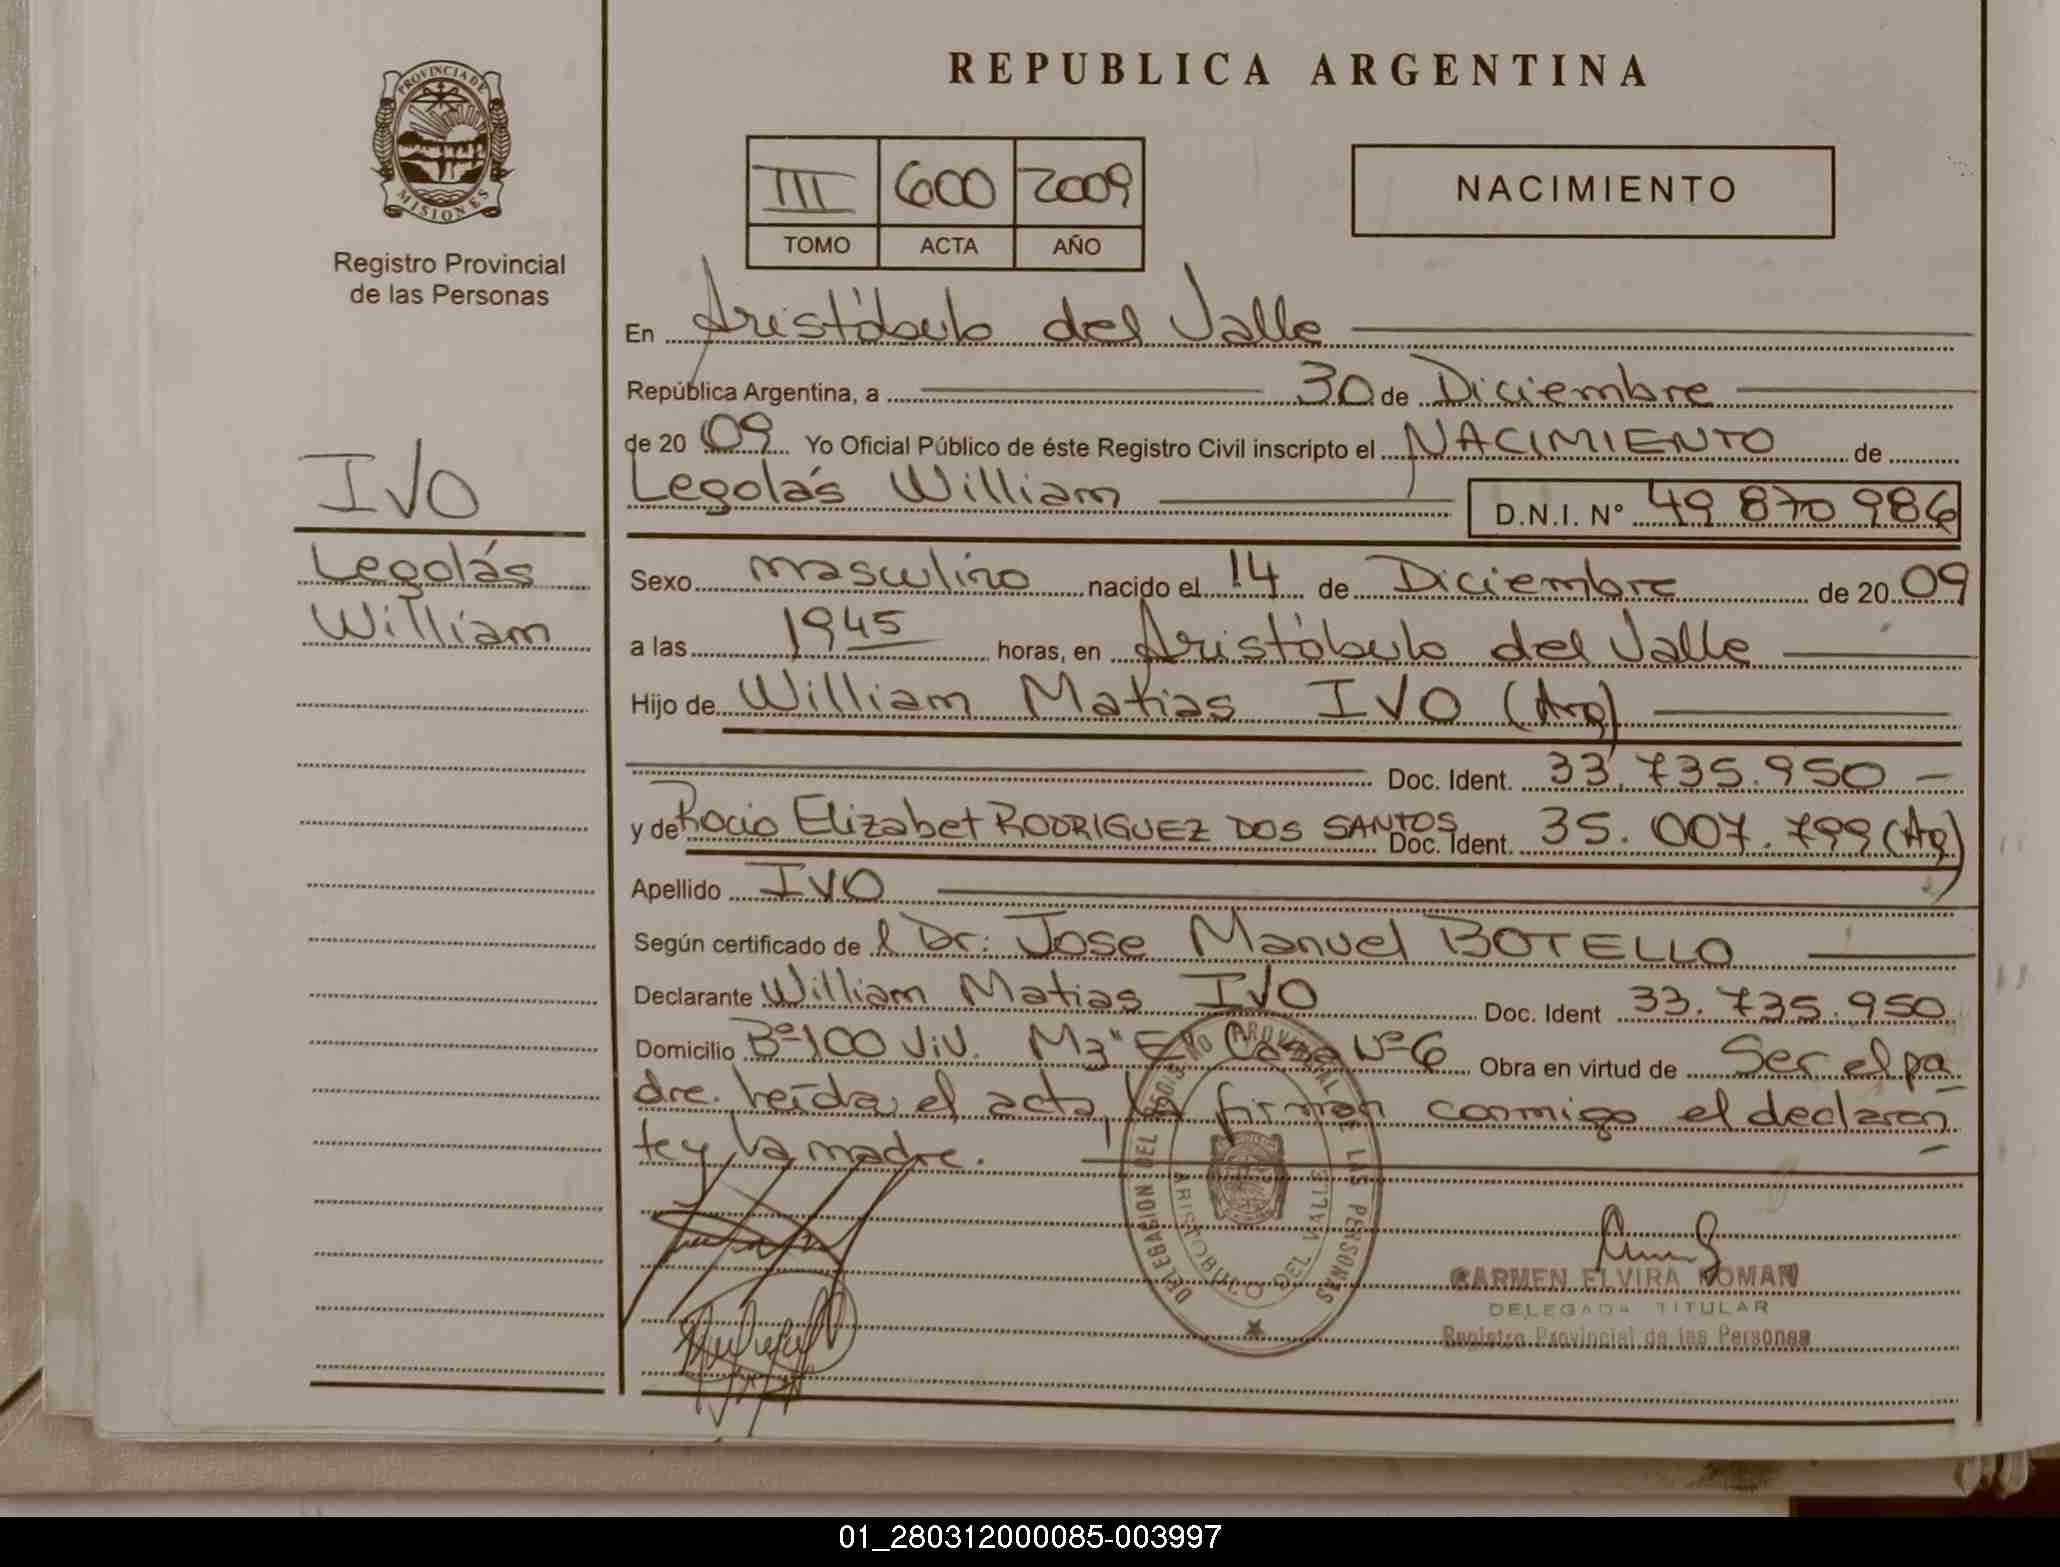 REPUBLICA ARGENTINA
PROVINCIA DE
MISIONES
Registro Provincial
de las Personas
III 600 2009
TOMO ACTA AÑO
NACIMIENTO
En Aristóbulo del Valle
República Argentina, a 30 de Diciembre
de 20 09 Yo Oficial Público de éste Registro Civil inscripto el NACIMIENTO de
Legolás William D.N.I. N° 49 870 986
IVO
Legolás
William
Sexo masculino nacido el 14 de Diciembre de 20 09
a las 1945 horas, en Aristóbulo del Valle
Hijo de William Matias IVO (Arg)
Doc. Ident. 33.735.950 -
y de Rocio Elizabet RODRIGUEZ DOS SANTOS Doc. Ident. 35.007.799 (Ag)
Apellido IVO
Según certificado de l Dr. Jose Manuel BOTELLO
Declarante William Matias IVO Doc. Ident 33.735.950
Domicilio Bº 100 Viv. Mz "E" Casa Nº 6 Obra en virtud de Ser el pa
dre. Leída el acta, la firman conmigo el declaran
te y la madre.
DELEGACION DEL REGISTRO PROVINCIAL DE LAS PERSONAS
ARISTOBULO DEL VALLE
CARMEN ELVIRA ROMAN
DELEGADA TITULAR
Registro Provincial de las Personas
01_280312000085-003997